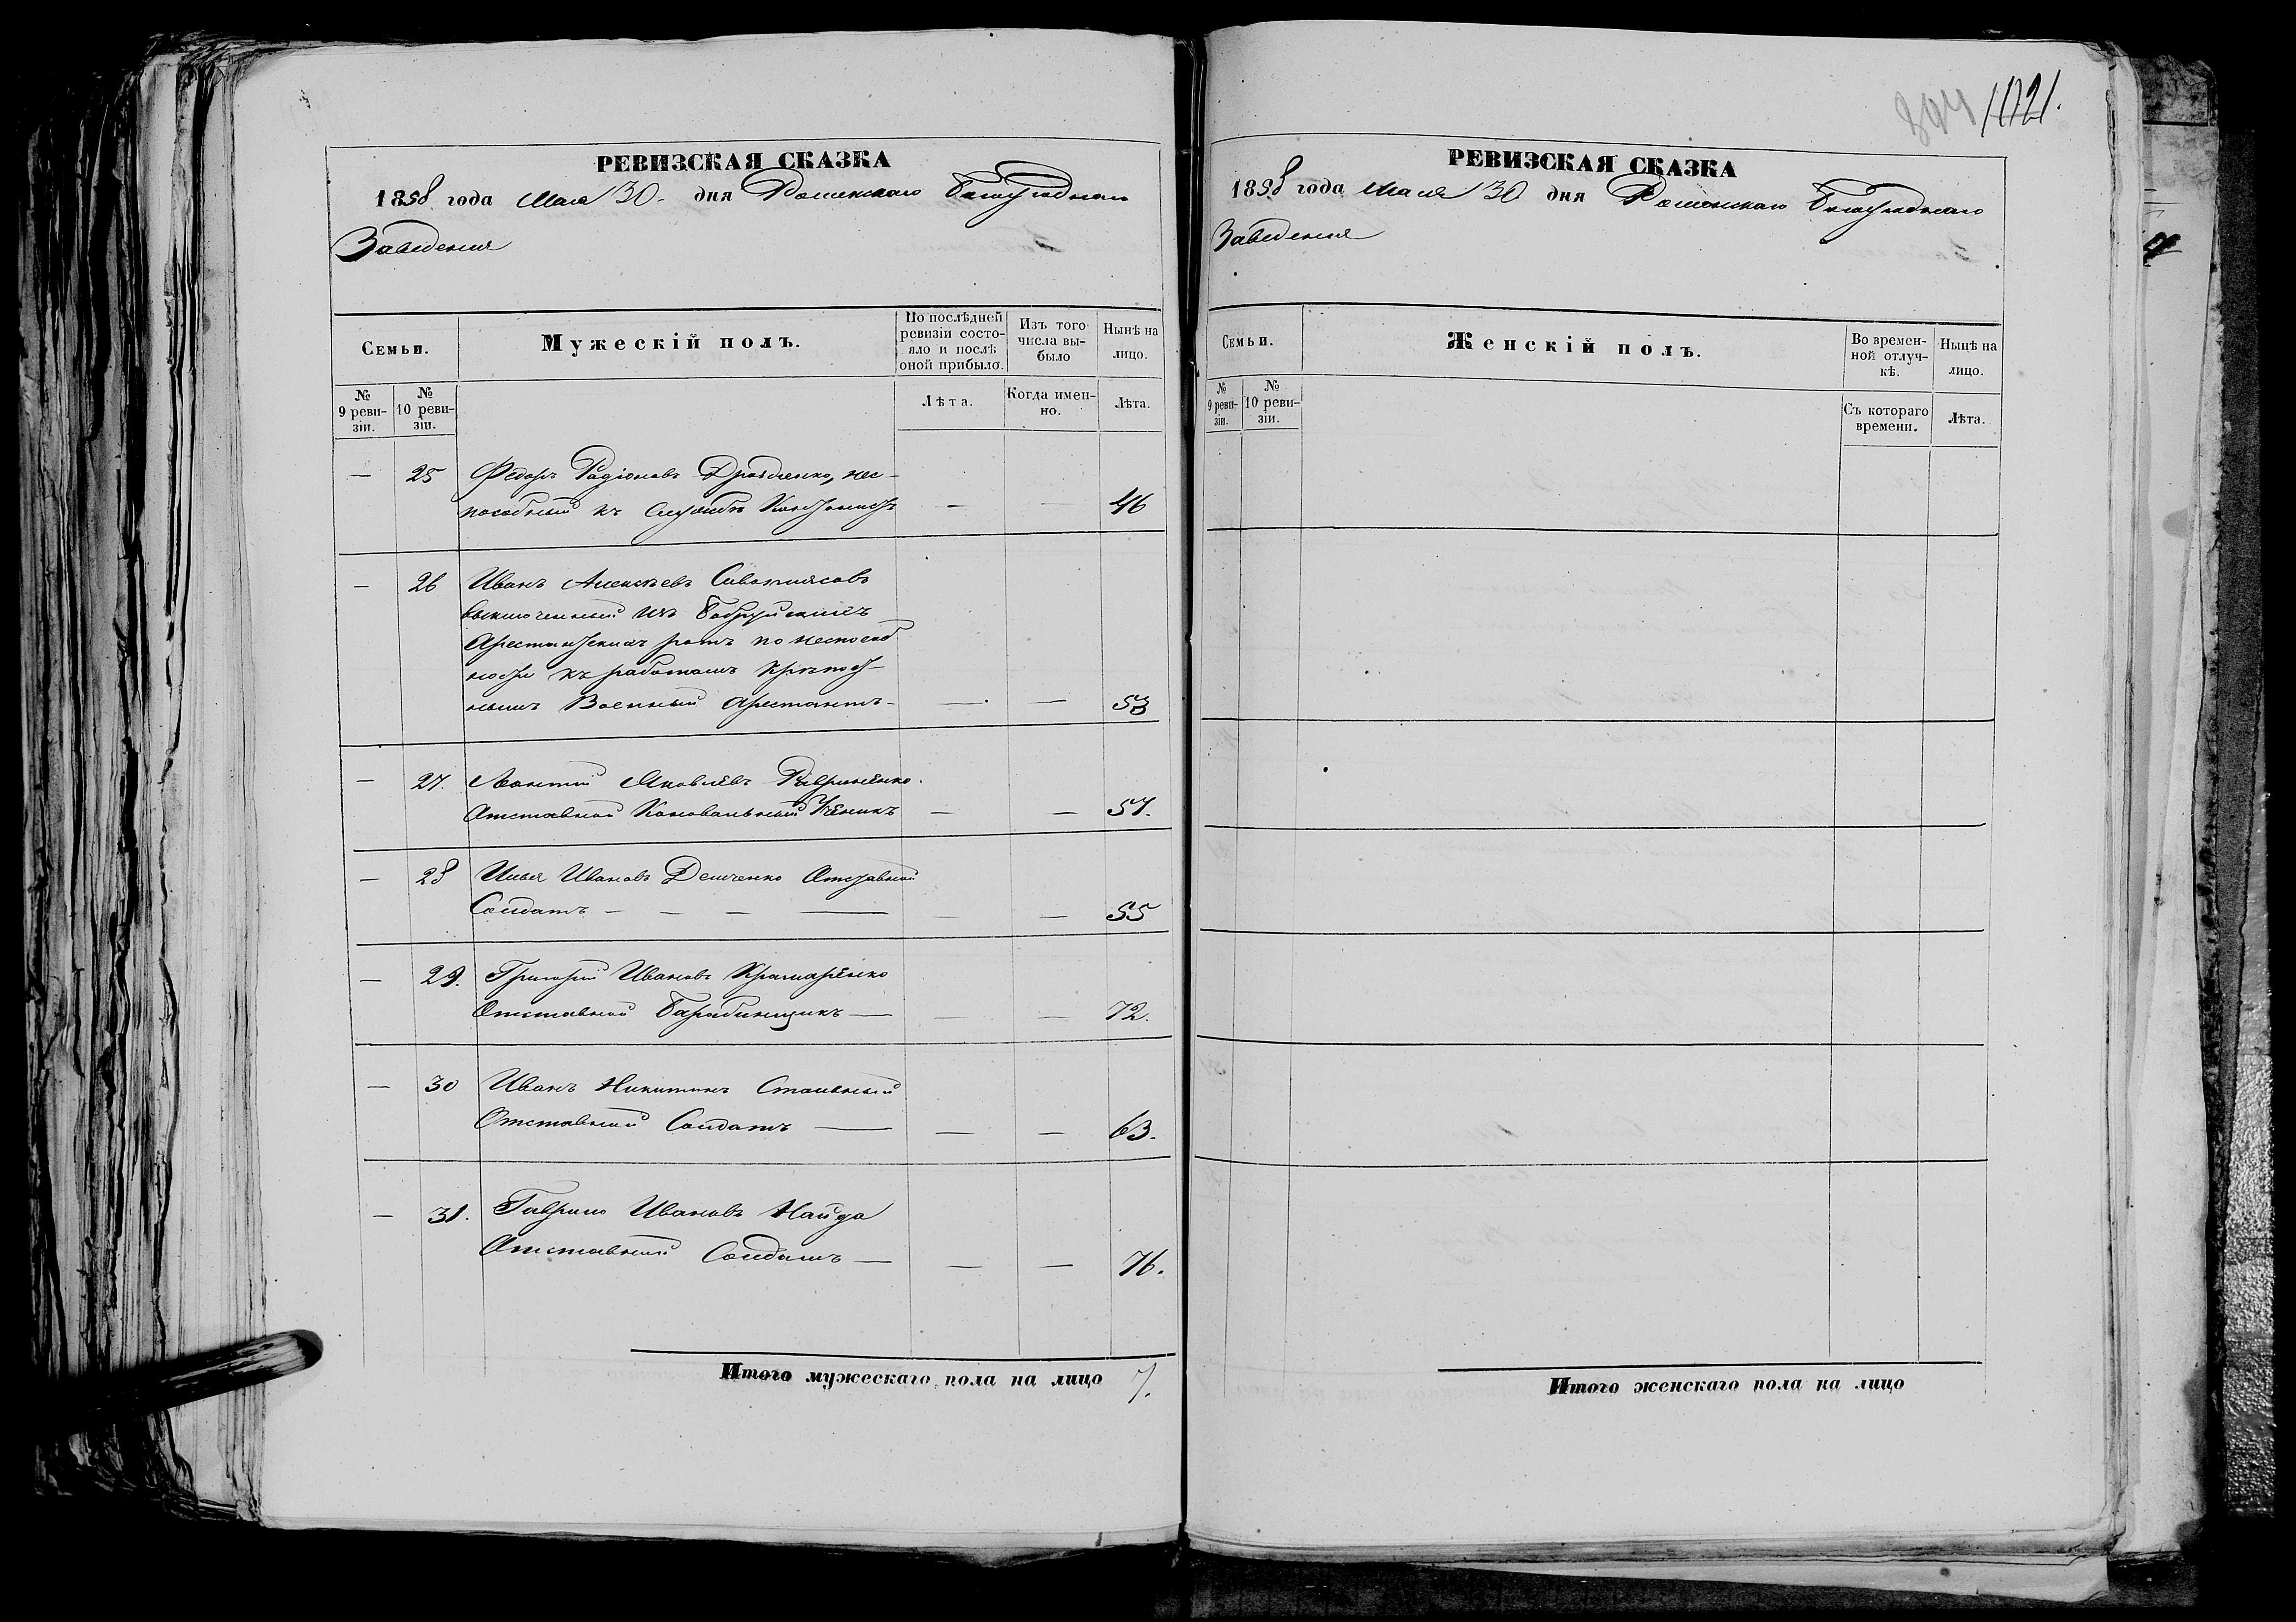 РЕВИЗСКАЯ СКАЗКА
1858 года Мая 30. дня Роменскаго Богоугоднаго
Заведения
Семьи.
Мужескій полъ.
По послѣдней ревизіи состояло и послѣ оной прибыло.
Изъ того числа выбыло
Нынѣ на лицо.
№ 9 ревизіи.
№ 10 ревизіи.
Лѣта.
Когда именно.
Лѣта.
— 25 Федоръ Радіоновъ нес-
пособный къ Службѣ Кантонистъ — — 46
— 26 Иванъ Алексѣевъ
выключенный изъ Бобруйскихъ
Арестантскихъ ротъ по неспособ
ности къ работамъ крѣпост-
нымъ Военный Арестантъ — — — 53
— 27. Леонтий Яковлевъ Гавриненко.
Отставной Коновальный Ученикъ — — 57.
— 28 Илья Ивановъ Демченко Отставной
Солдатъ — — — — — — 55
— 29. Григорий Ивановъ Крамаренко
Отставной Барабанщикъ — — — 72.
— 30 Иванъ Никитинъ
Отставный Солдатъ — — — 63.
— 31. Гаврило Ивановъ Найда
Отставный Солдатъ — — — 76.
Итого мужескаго пола на лицо 7.
1021.
РЕВИЗСКАЯ СКАЗКА
1858 года Мая 30 дня Роменскаго Богоугоднаго
Заведения
Семьи.
Женскій полъ.
Во временной отлучкѣ.
Нынѣ на лицо.
№ 9 ревизіи.
№ 10 ревизіи.
Съ котораго времени.
Лѣта.
Итого женскаго пола на лицо